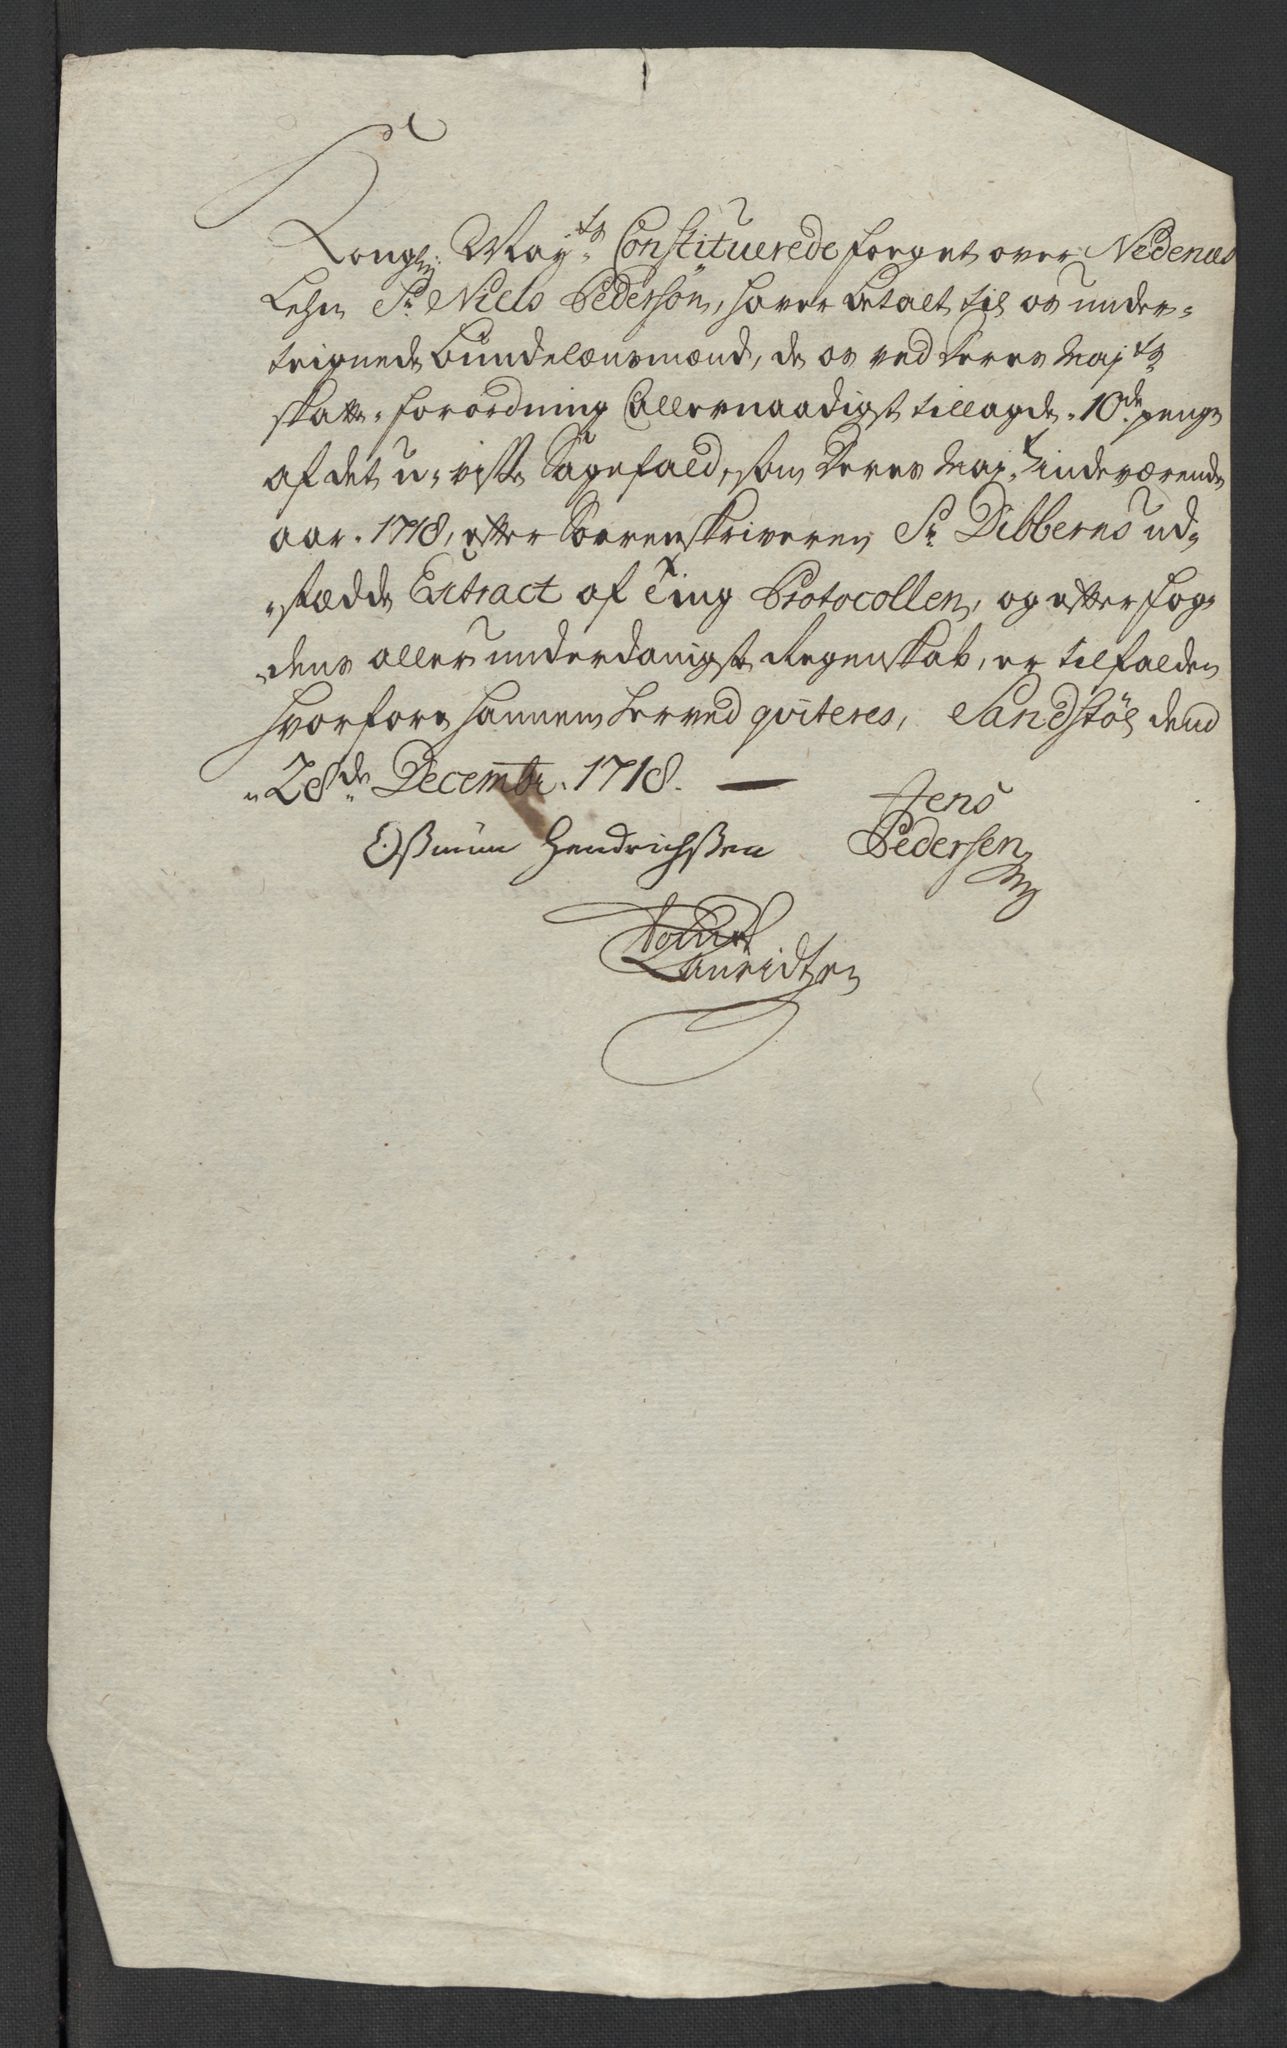 Kongl: May:ts Constituerede foeget over Nedenæs
Lehn Sr. Niels Pedersøn, hafver betalt til os under-
teignede Bundelænsmænd, de os ved deres Maj:ts
skatte-forordning Allernaadigst tillagde 10de penge
af det u-visse Sagefald, som deres Maj:t indeværende
aar 1718, efter Sorenskriveren Sr. Dibberns ud-
-stædde Extract af Ting Protocollen, og efter fog-
-dens aller underdanigste Regenskab, er tilfalden
hvorfore hannem herved qviteres, Sandstøl dend
28de Decembr. 1718. —
Oßmun Hendrichßen Jens
Pedersen
Lauridtzen